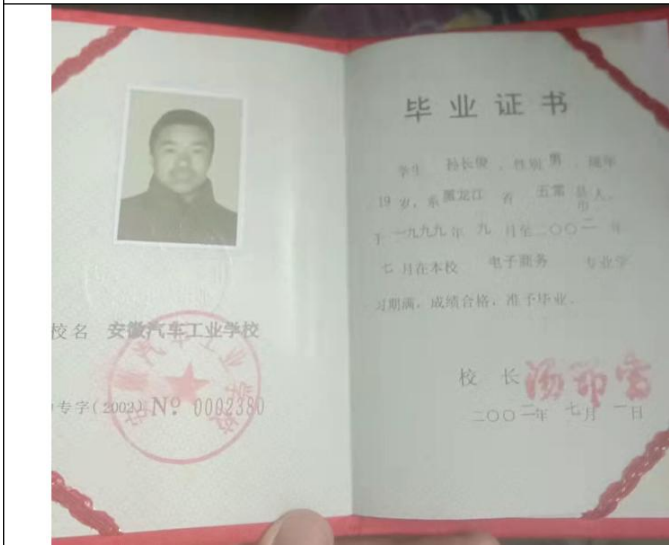 校名 安徽汽车工业学校
专字(2002) № 0002380
安徽汽车工业学校
毕业证书
学生 孙长俊 ,性别 男 ,现年
19 岁,系 黑龙江 省 五常 县市人,
于一九九九年 九 月至二〇〇二 年
七 月在本校 电子商务 专业学
习期满,成绩合格,准予毕业。
校 长
二〇〇二年 七月 一日